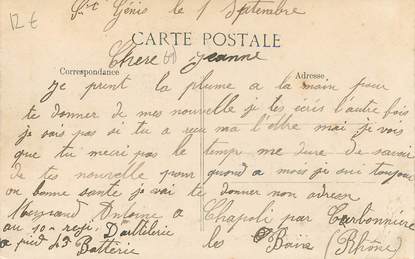 12 €
St Génis le 1 Septembre
CARTE POSTALE
Chere Jeanne
Correspondance
Adresse
Je prent la plume a la main pour
te donner de mes nouvelle je tes écris l'autre fois
je vois pas si tu a reçu ma l'ettre mai je vois
que tu mecri pas le temp me dure de savoir
de tes nouvelle pour quand a mois je sui toujour
en bonne santé je vai te donner mon adresse
Antoine a Chapoli par Charbonnière
au 10e regi. D'artilerie les Bains (Rhône)
a pied 43 Batterie